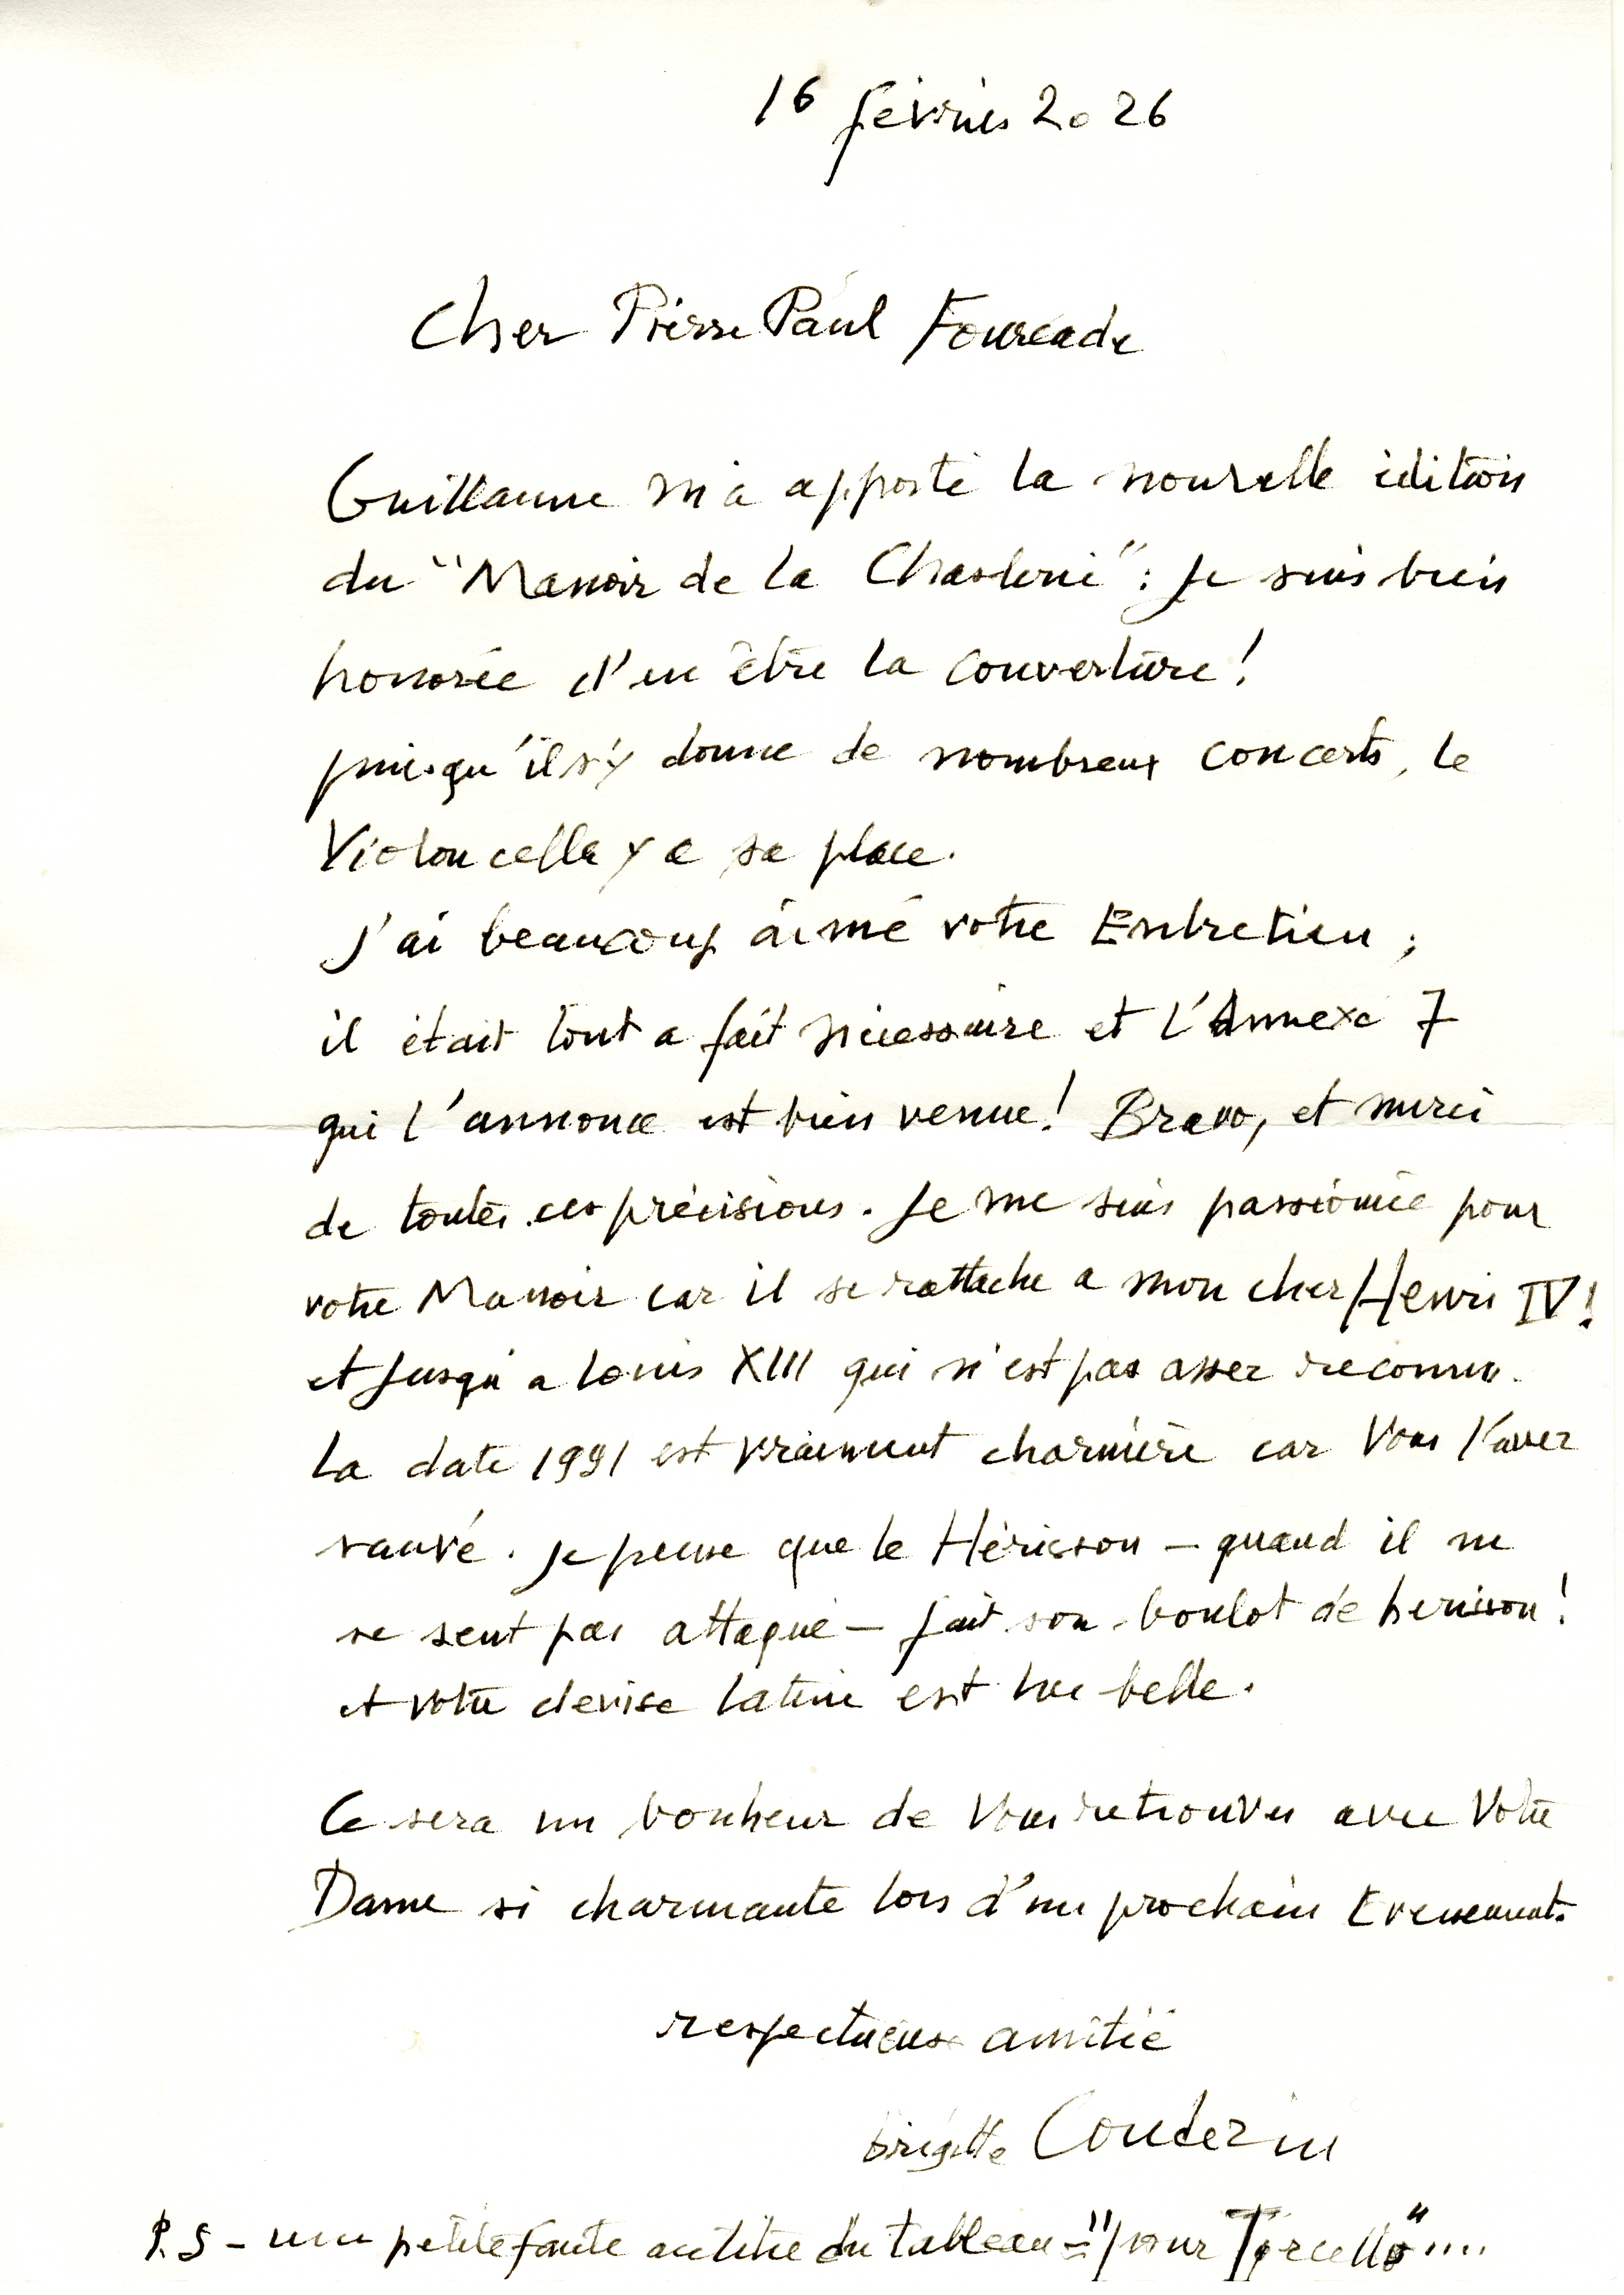 16 février 2026
Cher Pierre Paul Fourcade
Guillaume m'a apporté la nouvelle édition
du "Manoir de la Chaslerie" : je suis bien
honorée d'en être la couverture !
puisqu'il s'y donne de nombreux concerts, le
Violoncelle y a sa place.
J'ai beaucoup aimé votre Entretien ;
il était tout a fait nécessaire et l'Annexe 7
qui l'annonce est bien venue ! Bravo, et merci
de toutes ces précisions. Je me suis passionnée pour
votre Manoir car il se rattache a mon cher Henri IV !
et jusqu'a Louis XIII qui n'est pas assez reconnu.
La date 1991 est vraiment charnière car Vous l'avez
sauvé. je pense que le Hérisson – quand il ne
se sent pas attaqué – fait son boulot de hérisson !
et votre devise latine est très belle.
Ce sera un bonheur de Vous retrouver avec Votre
Dame si charmante lors d'un prochain Evenement.
respectueuse amitié
brigitte
P.S – une petite faute au titre du tableau = "pour Torcello" ....